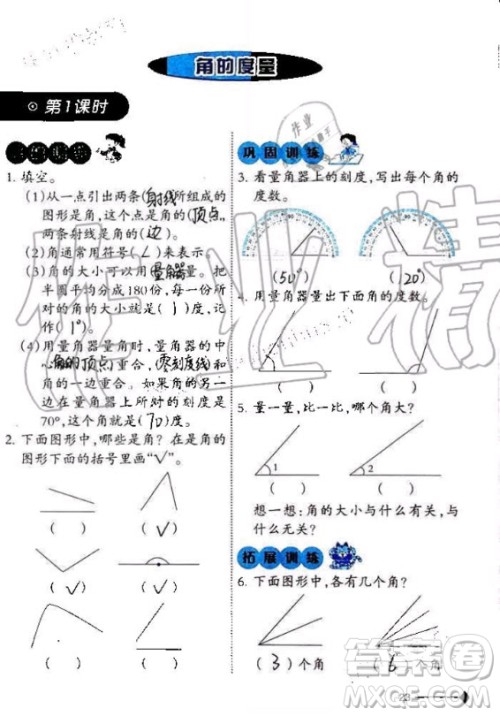 角的度量
第1课时
1. 填空。
(1)从一点引出两条(射线)所组成的
图形是角,这个点是角的(顶点),
两条射线是角的(边)。
(2)角通常用符号(∠)来表示。
(3)角的大小可以用(量角器)量。把
半圆平均分成180份,每一份所
对的角的大小就是(1)度,记
作(1°)。
(4)用量角器量角时,量角器的中
心与(角的顶点)重合,(零刻度线)和
角的一边重合。如果角的另一
边在量角器上所对的刻度是
70°,这个角就是(70)度。
2. 下面图形中,哪些是角?在是角的
图形下面的括号里画“√”。
( ) (√)
(√) (√)
(  ) (√)
巩固训练
3. 看量角器上的刻度,写出每个角的
度数。
(50°) (120°)
4. 用量角器量出下面角的度数。
( ) ( )
5. 量一量,比一比,哪个角大?
1 2
( ) ( )
想一想:角的大小与什么有关,与
什么无关?
拓展训练
6. 下面图形中,各有几个角?
(3)个角 (6)个角
23
作业精
答案圈
MXQE.COM